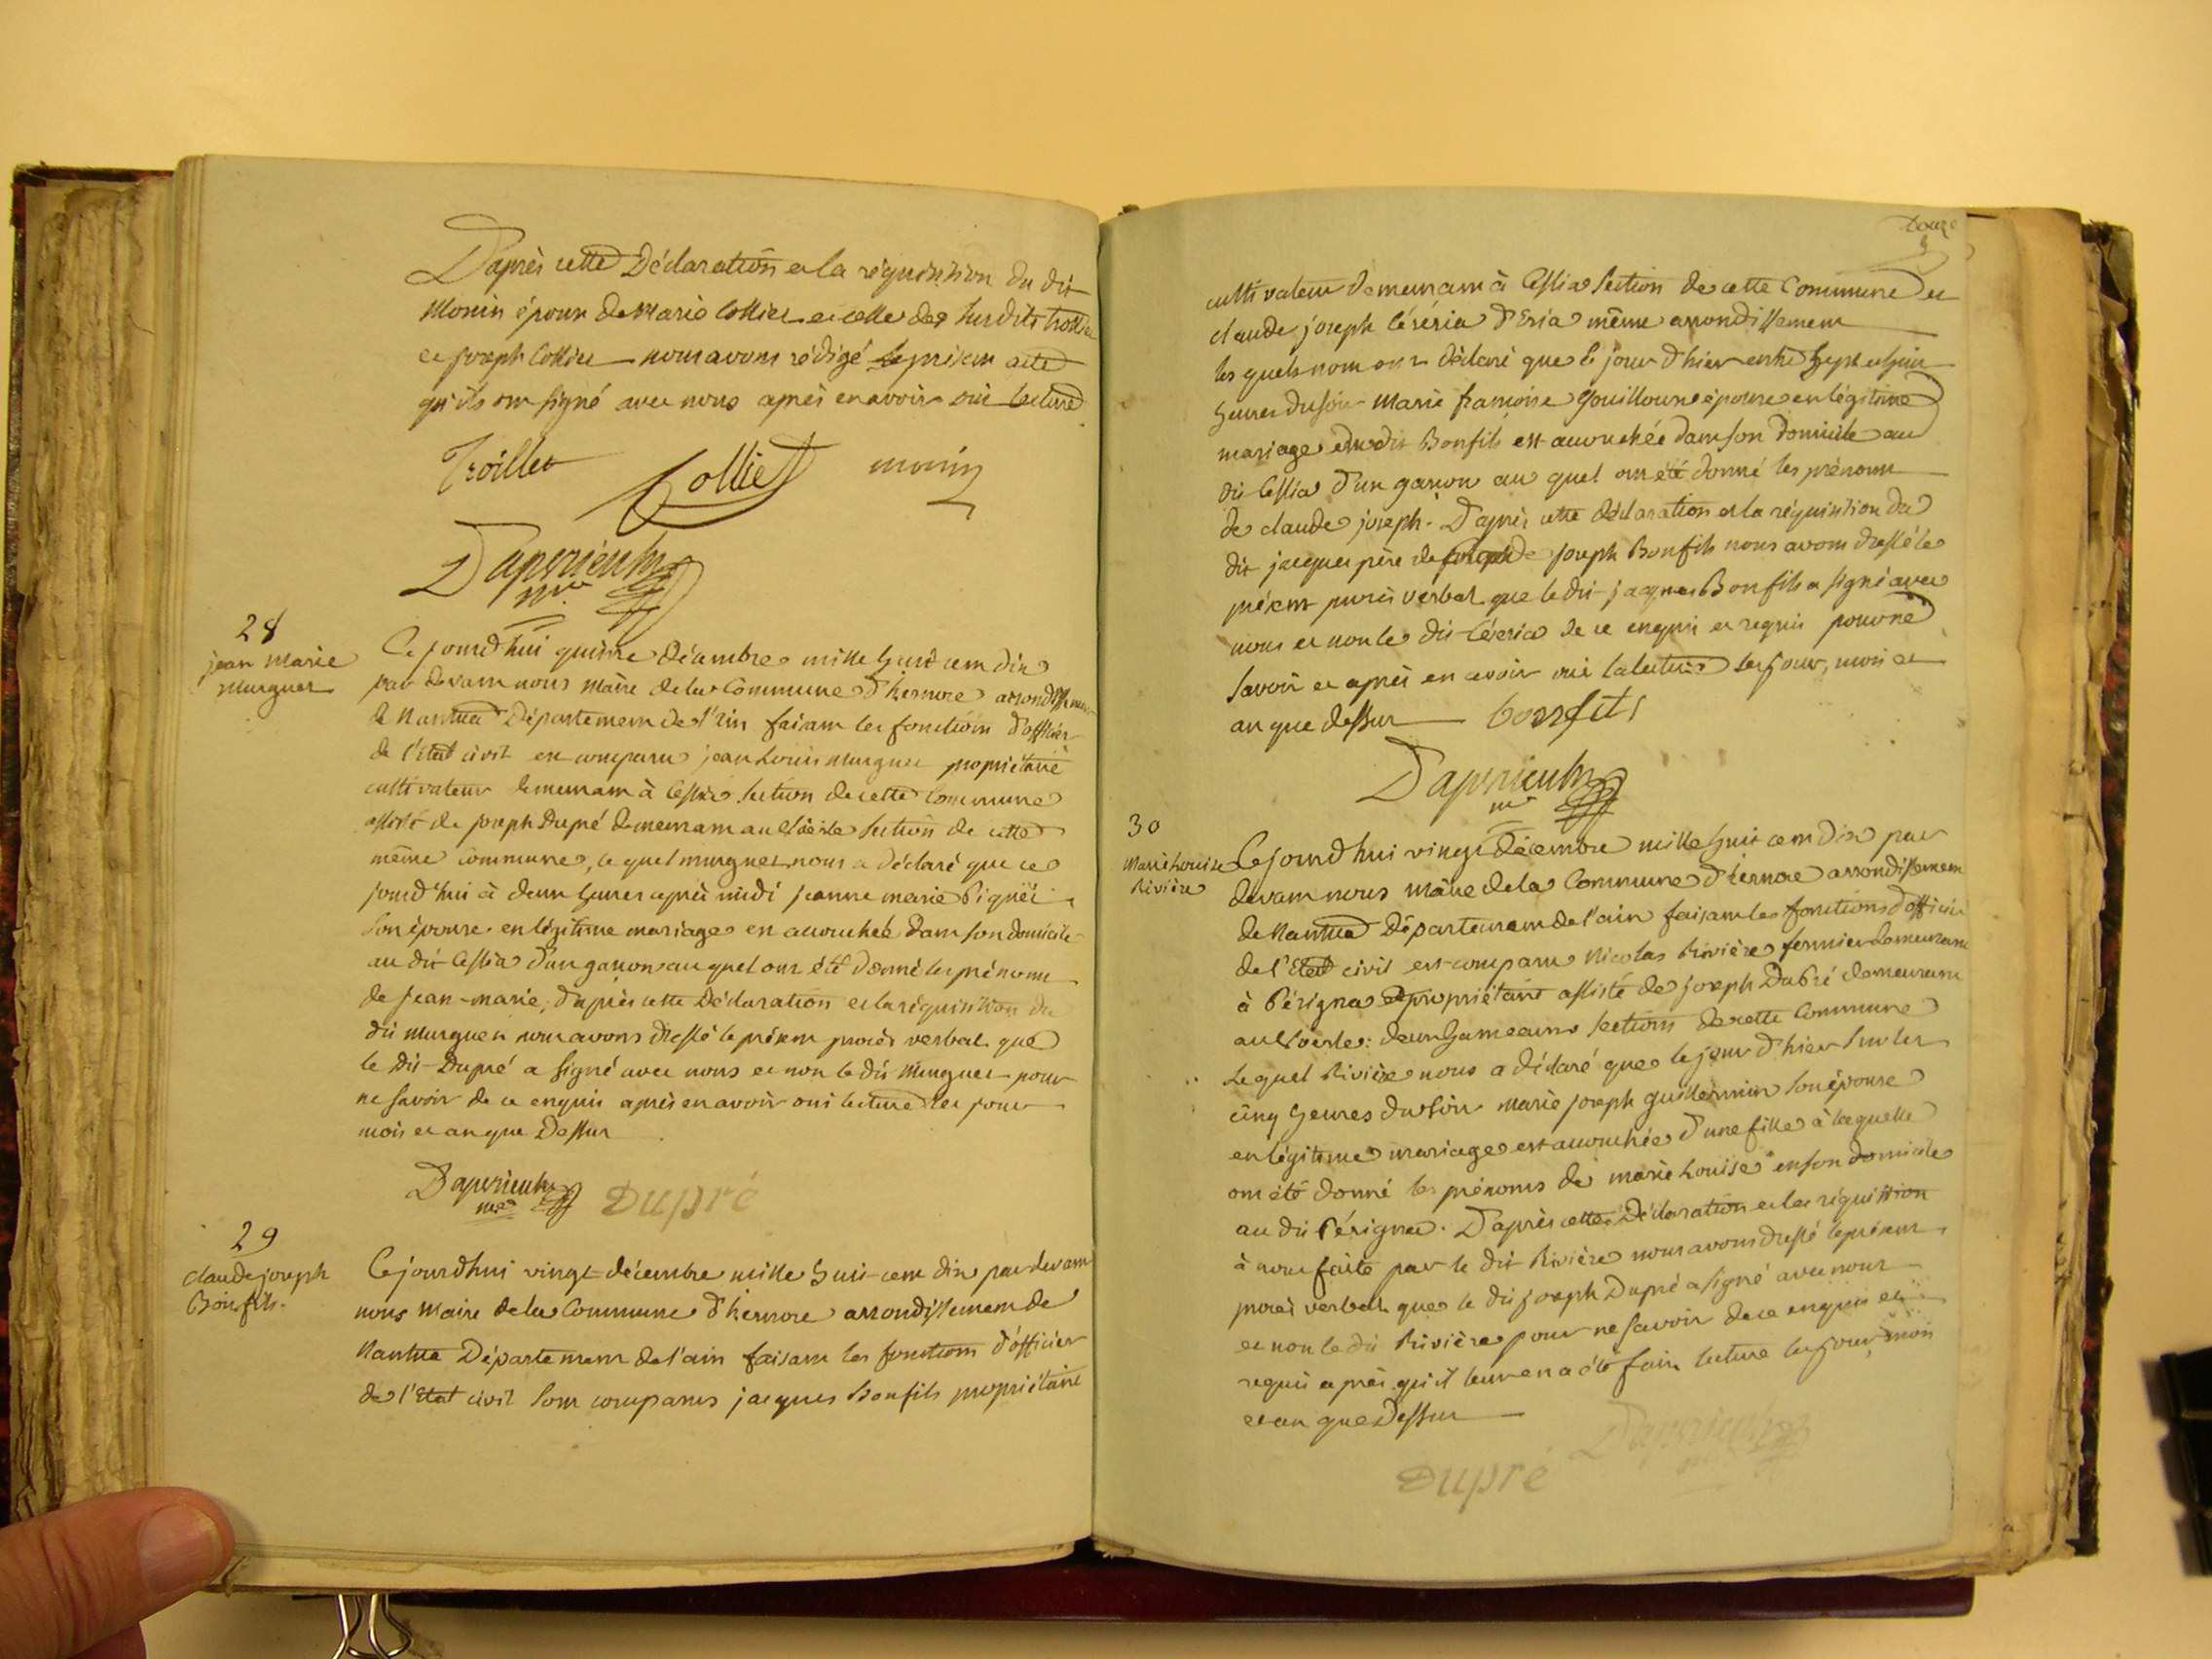 D'après cette Déclaration et la réquisition du dit
Monin époux de Marie Collier et celle des susdits trollier
et joseph Collier nous avons rédigé le présent acte
qu'ils ont signé avec nous après en avoir ouï lecture
Troillet Colliex monin
Dapvrieulx
mre
28
jean Marie
Murguet
Ce jourd'hui quinze décembre mille huit cent dix
par devant nous Maire de la Commune d'hernore arrondissement
de Nantua Département de l'ain faisant les fonctions d'officier
de l'état civil est comparu jean Louis murguet propriétaire
cultivateur demeurant à Cessia Section de cette Commune
assisté de joseph Dupré demeurant au Voërle Section de cette
même commune, le quel murguet nous a déclaré que ce
jourd'hui à deux heures après midi jeanne marie Piguet
son épouse en légitime mariage est accouchée dans son domicile
au dit Cessia d'un garçon au quel ont été donné les prénoms
de jean-marie, d'après cette Déclaration et la réquisition du
dit murguet nous avons dressé le présent procès verbal que
le dit Dupré a signé avec nous et non le dit Murguet pour
ne savoir de ce enquis après en avoir oui lecture les jour
mois et an que Dessus
Dapvrieulx Dupré
mre
29
claude joseph
Bonfils.
Ce jourd'hui vingt décembre mille huit cent dix par devant
nous Maire de la Commune d'hernore arrondissement de
Nantua Département de l'ain faisant les fonctions d'officier
de l'Etat civil sont comparus jacques Bonfils propriétaire
Douze
cultivateur demeurant à Cessia Section de cette Commune et
claude joseph Céséria d'Eria même arrondissement
les quels nous ont déclaré que le jour d'hier entre sept et huit
heures du soir Marie françoise Gouilloux épouse en légitime
mariage du dit Bonfils est accouchée dans son domicile au
dit Cessia d'un garçon au quel ont été donné les prénoms
de claude joseph. D'après cette déclaration et la réquisition du
dit jacques père de joseph Bonfils nous avons dressé le
présent procès verbal que le dit jacques Bonfils a signé avec
nous et non le dit Céseria de ce enquis et requis pour ne
savoir et après en avoir oui la lecture les jour, mois et
an que dessus bonfils
Dapvrieulx
mre
30
Marie Louise
Rivière
Ce jourd'hui vingt Décembre mille huit cent dix par
devant nous Maire de la Commune d'hernore arrondissement
de Nantua Département de l'ain faisant les fonctions d'officier
de l'Etat civil est comparu Nicolas Rivière fermier demeurant
à Pérignat et propriétaire assisté de joseph Dupré demeurant
au Voërle: deux hameaux Sections de cette Commune
Le quel Rivière nous a déclaré que le jour d'hier sur les
cinq heures du soir Marie joseph guillermin son épouse
en légitime mariage est accouchée d'une fille à laquelle
ont été donné les prénoms de marie Louise en son domicile
au dit Pérignat. D'après cette Déclaration et la réquisition
à nous faite par le dit Rivière nous avons dressé le présent
procès verbal que le dit joseph Dupré a signé avec nous
et non le dit Rivière pour ne savoir de ce enquis et
requis après qu'il leur en a été fait lecture les jour, mois
et an que Dessus
Dupré Dapvrieulx